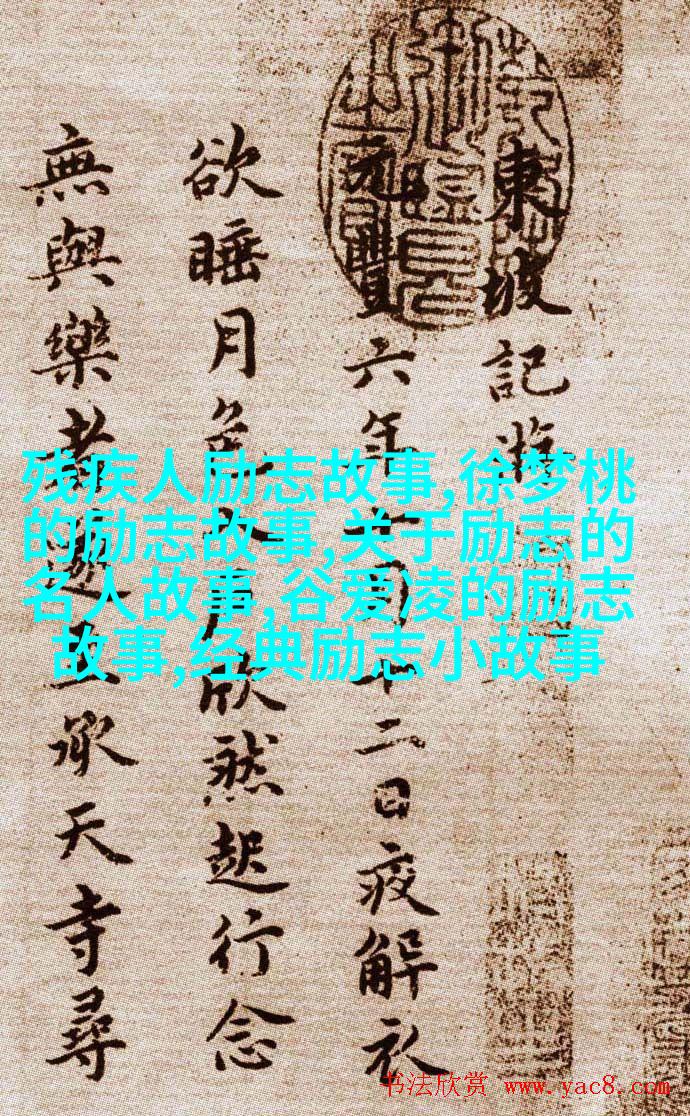 東坡記
元豐六年十月十二日夜解衣
欲睡月色入户欣然起行念
無與樂者遂至承天寺尋
残疾人励志故事,徐梦桃
的励志故事,关于励志的
名人故事,谷爱凌的励志
故事,经典励志小故事
书法欣赏 www.yac8.com